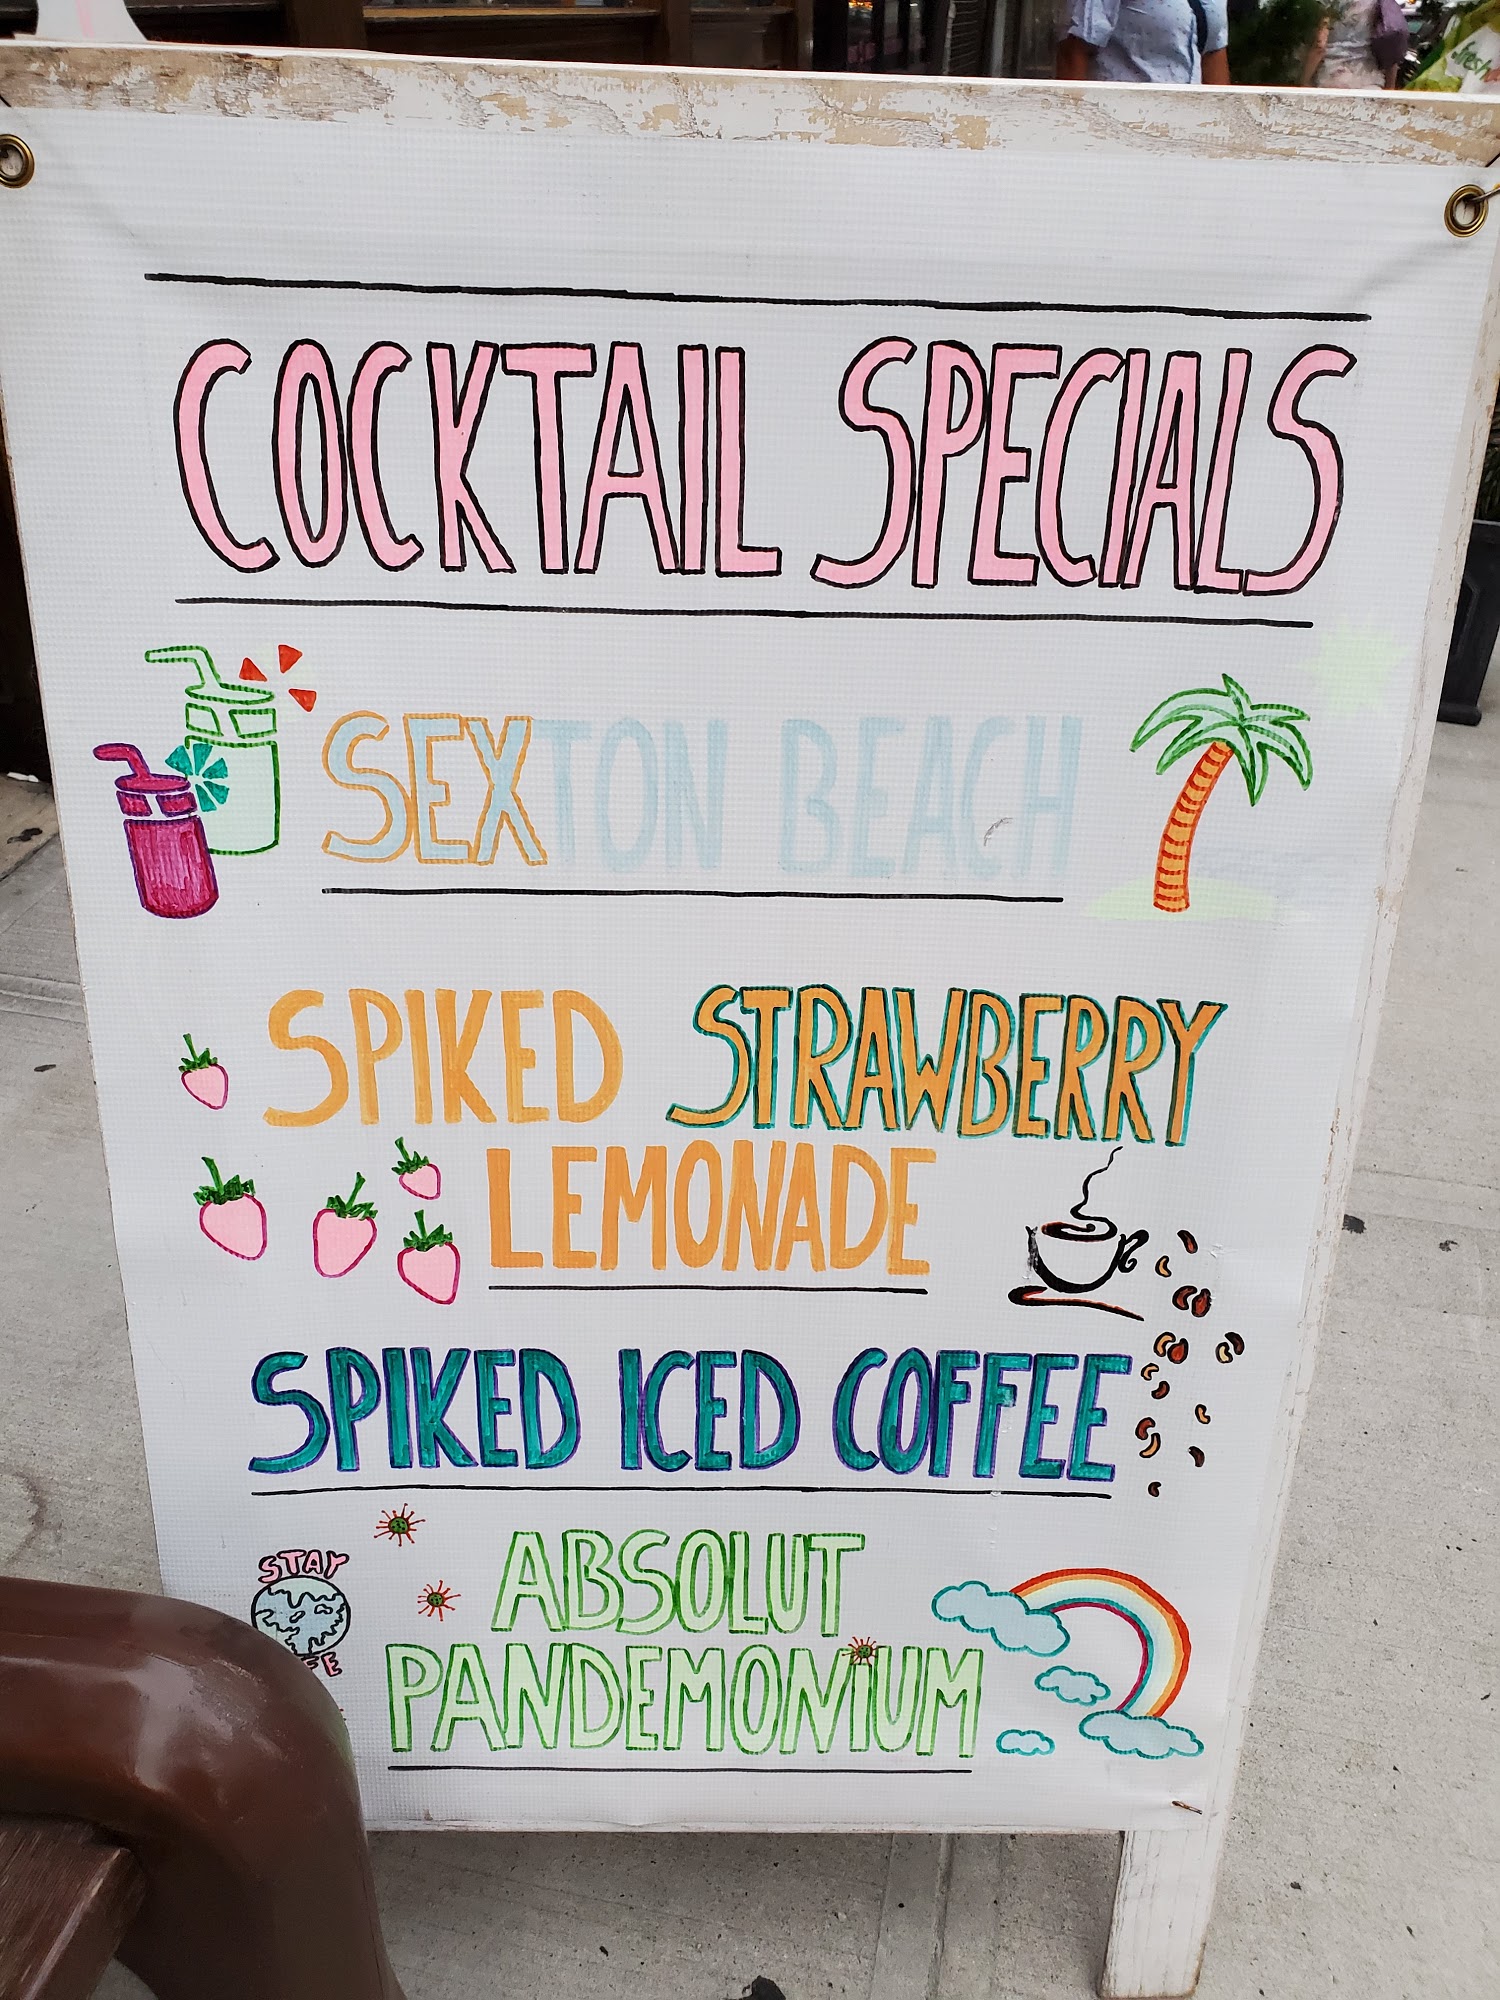 fresh
COCKTAIL SPECIALS
SEXTON BEACH
SPIKED STRAWBERRY
LEMONADE
SPIKED ICED COFFEE
STAY
ABSOLUT
PANDEMONIUM